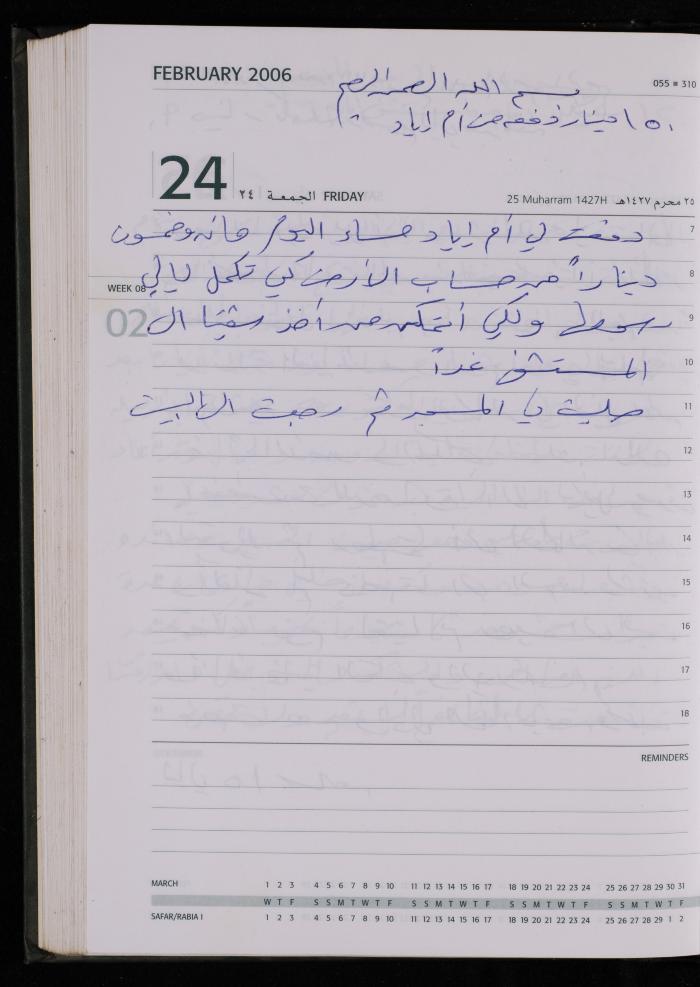 FEBRUARY 2006
055 ■ 310
بسم الله الرحمن الرحيم
١٥٠ دينار دفعه من أم إياد
24 ٢٤ الجمعة FRIDAY
25 Muharram 1427H ٢٥ محرم ١٤٢٧هـ
7 دفعت لي أم إياد مساء اليوم مائه وخمسون
8 ديناراً من حساب الأرض كي تكمل ليالي
WEEK 08
9 ولكي أتمكن من أخذ ال
02
10 المستشفى غداً
11 صليت المسجد ثم رجعت الى البيت
12
13
14
15
16
17
18
REMINDERS
MARCH 1 2 3 4 5 6 7 8 9 10 11 12 13 14 15 16 17 18 19 20 21 22 23 24 25 26 27 28 29 30 31
W T F S S M T W T F S S M T W T F S S M T W T F S S M T W T F
SAFAR/RABIA I 1 2 3 4 5 6 7 8 9 10 11 12 13 14 15 16 17 18 19 20 21 22 23 24 25 26 27 28 29 1 2